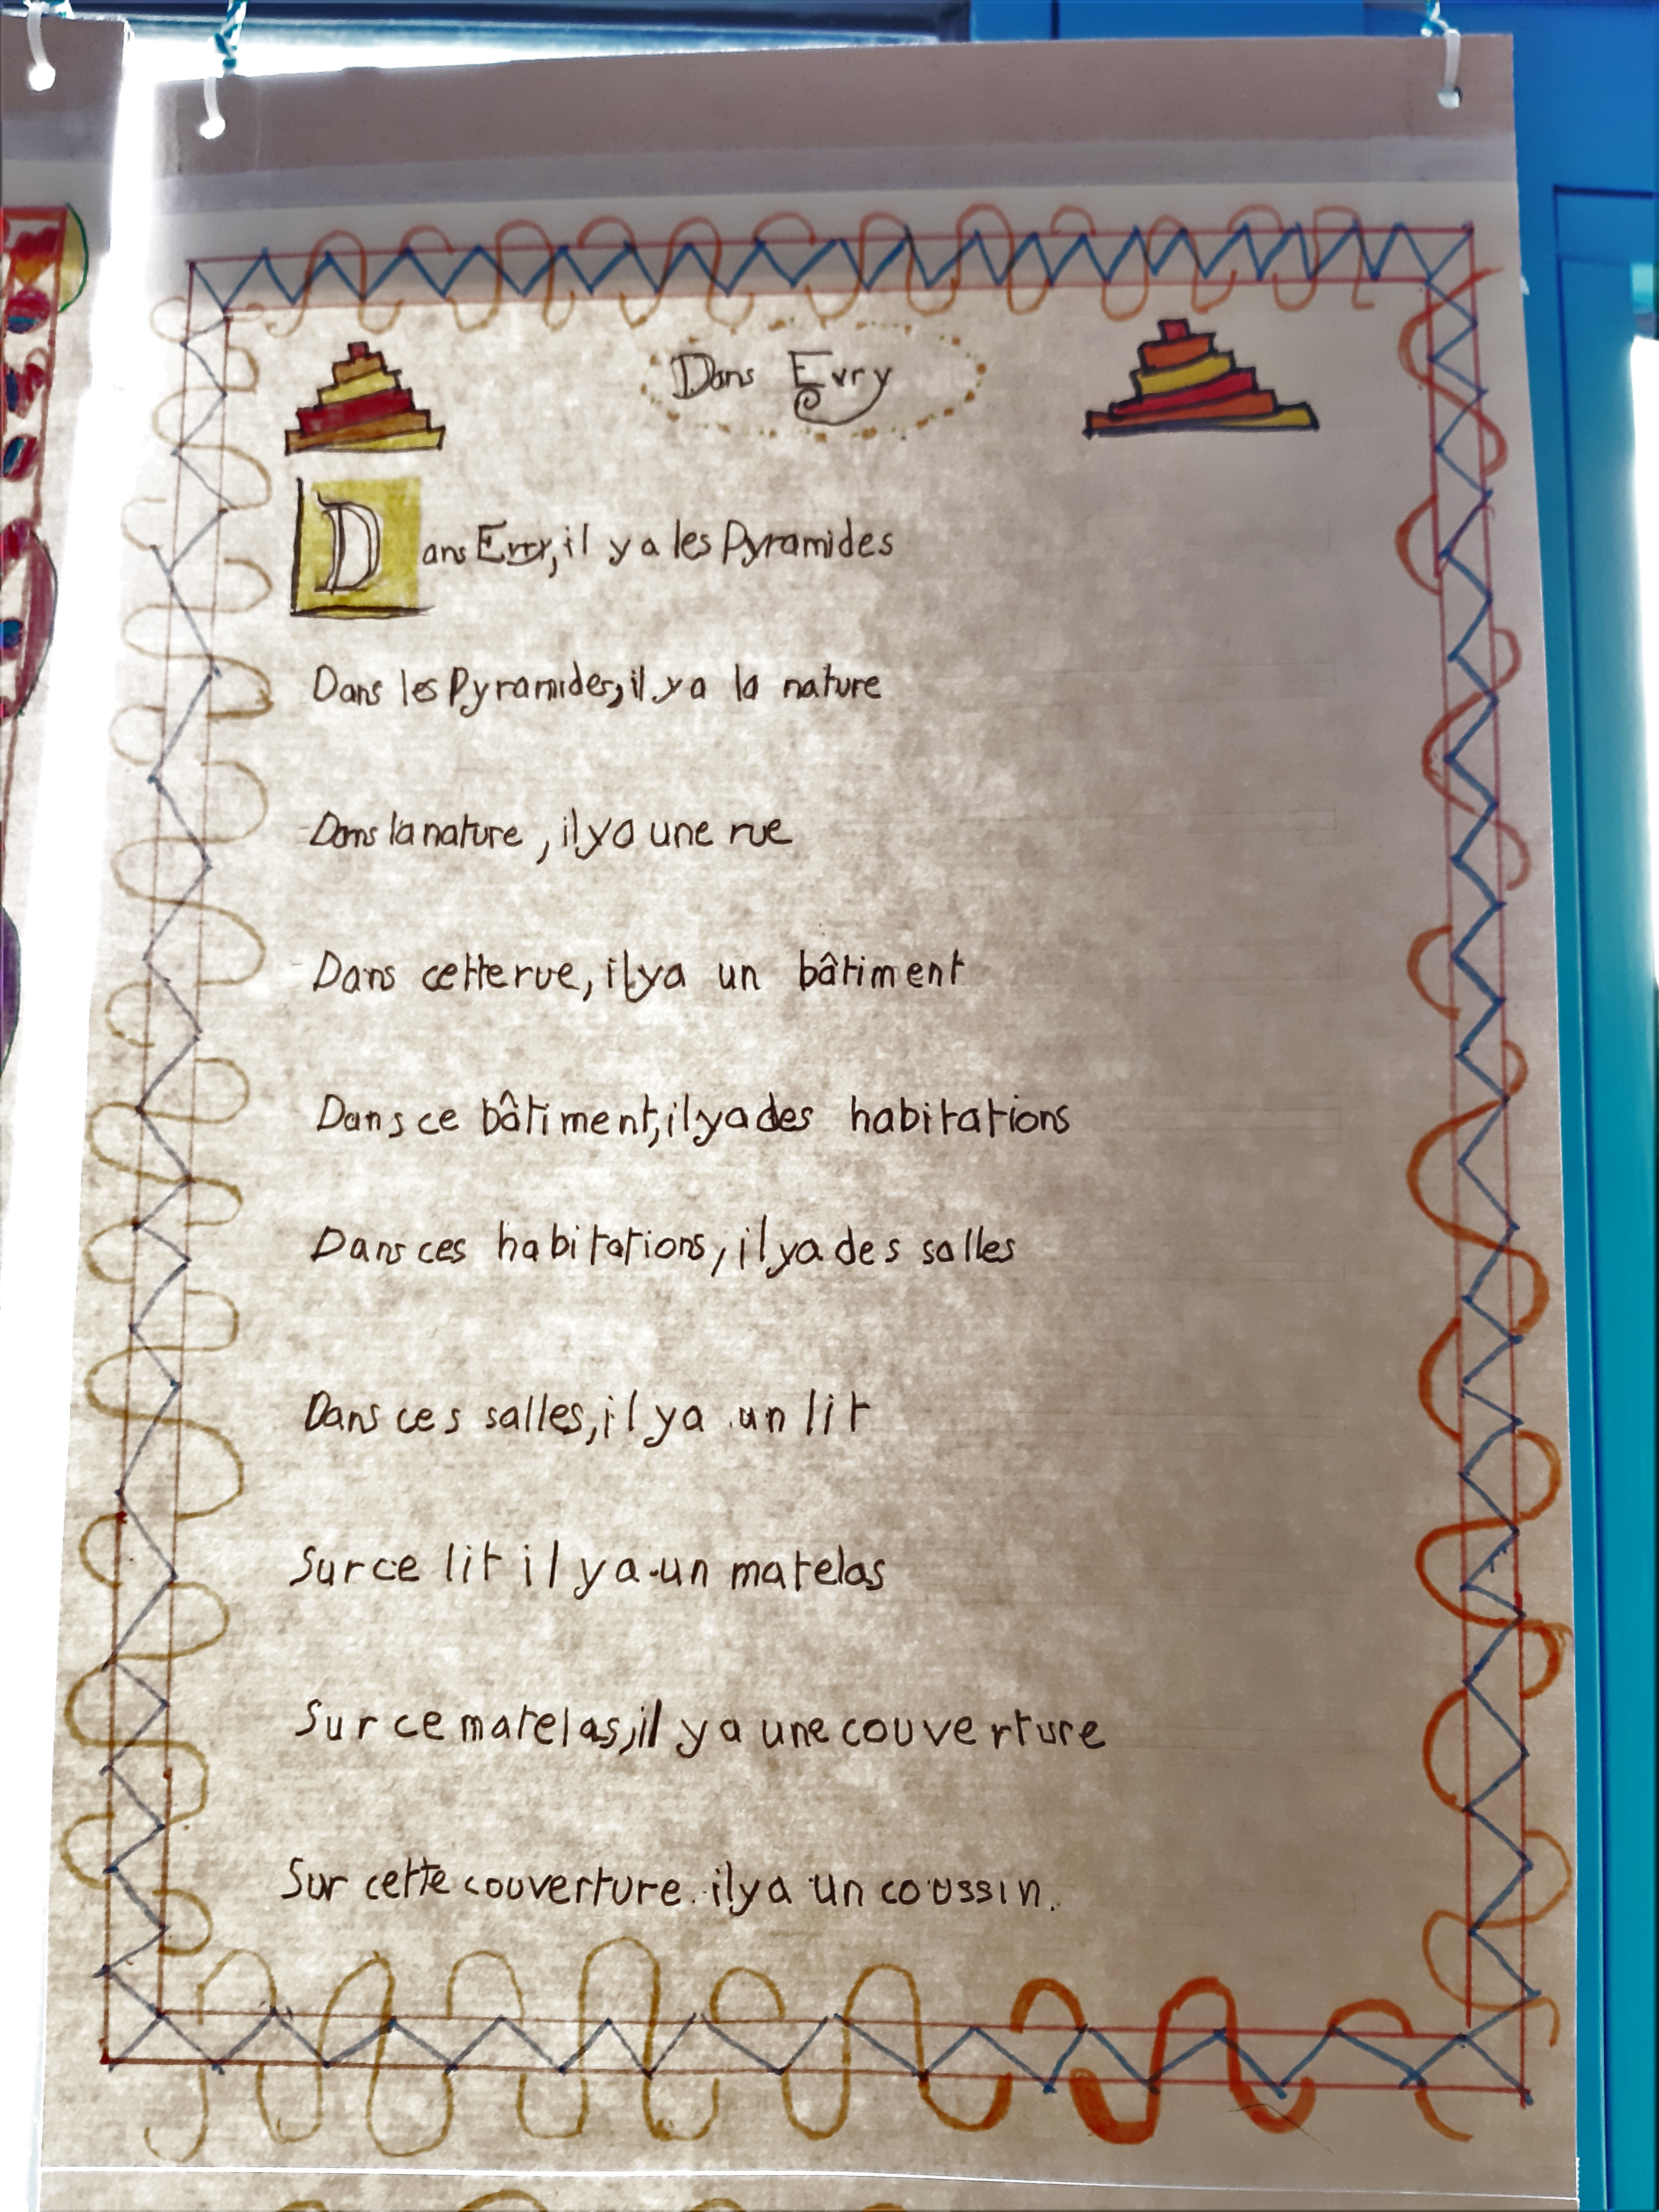 Dans Evry
Dans Evry, il y a les Pyramides
Dans les Pyramides, il y a la nature
Dans la nature, il y a une rue
Dans cette rue, il y a un bâtiment
Dans ce bâtiment, il y a des habitations
Dans ces habitations, il y a des salles
Dans ces salles, il y a un lit
Sur ce lit il y a un matelas
Sur ce matelas, il y a une couverture
Sur cette couverture. il y a un coussin.